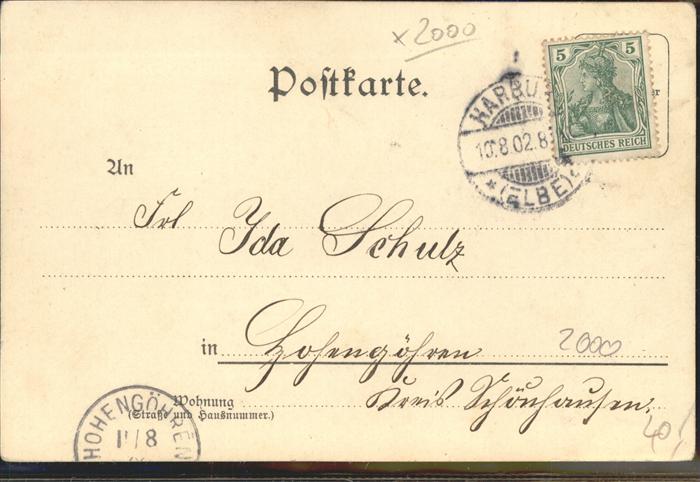 x 2000
Postkarte.
5 5
DEUTSCHES REICH
HARBU
10.8.02.8
* (ELBE)
An
Frl Ida Schulz
in Hohengöhren
2000
Wohnung
(Straße und Hausnummer.)
Kreis Schönhausen.
HOHENGÖHREN
11/8
40,